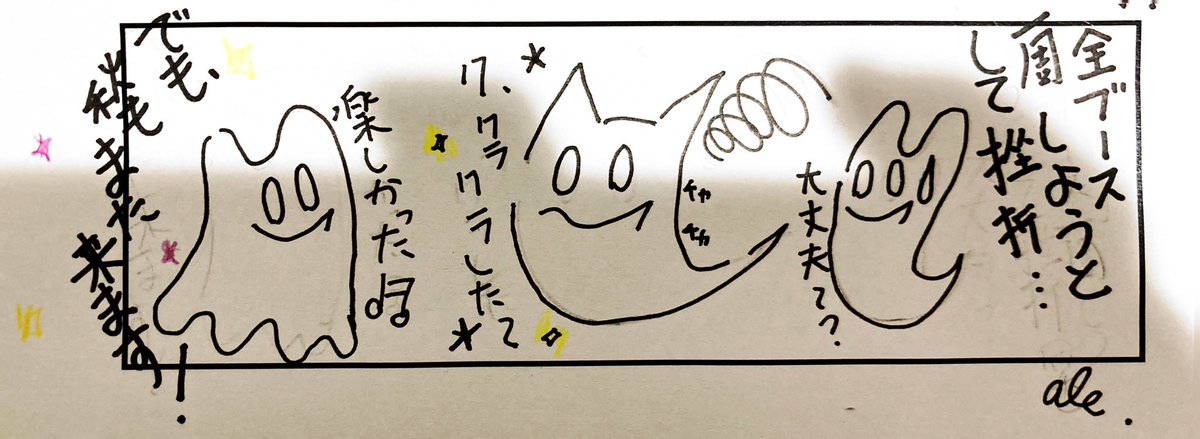 全ブース
周しようと
して挫折…
大丈夫て?
チカ
チカ
ク、クラ
クラしたて
楽しかった
でも、
秋もまた来ます!
ale.